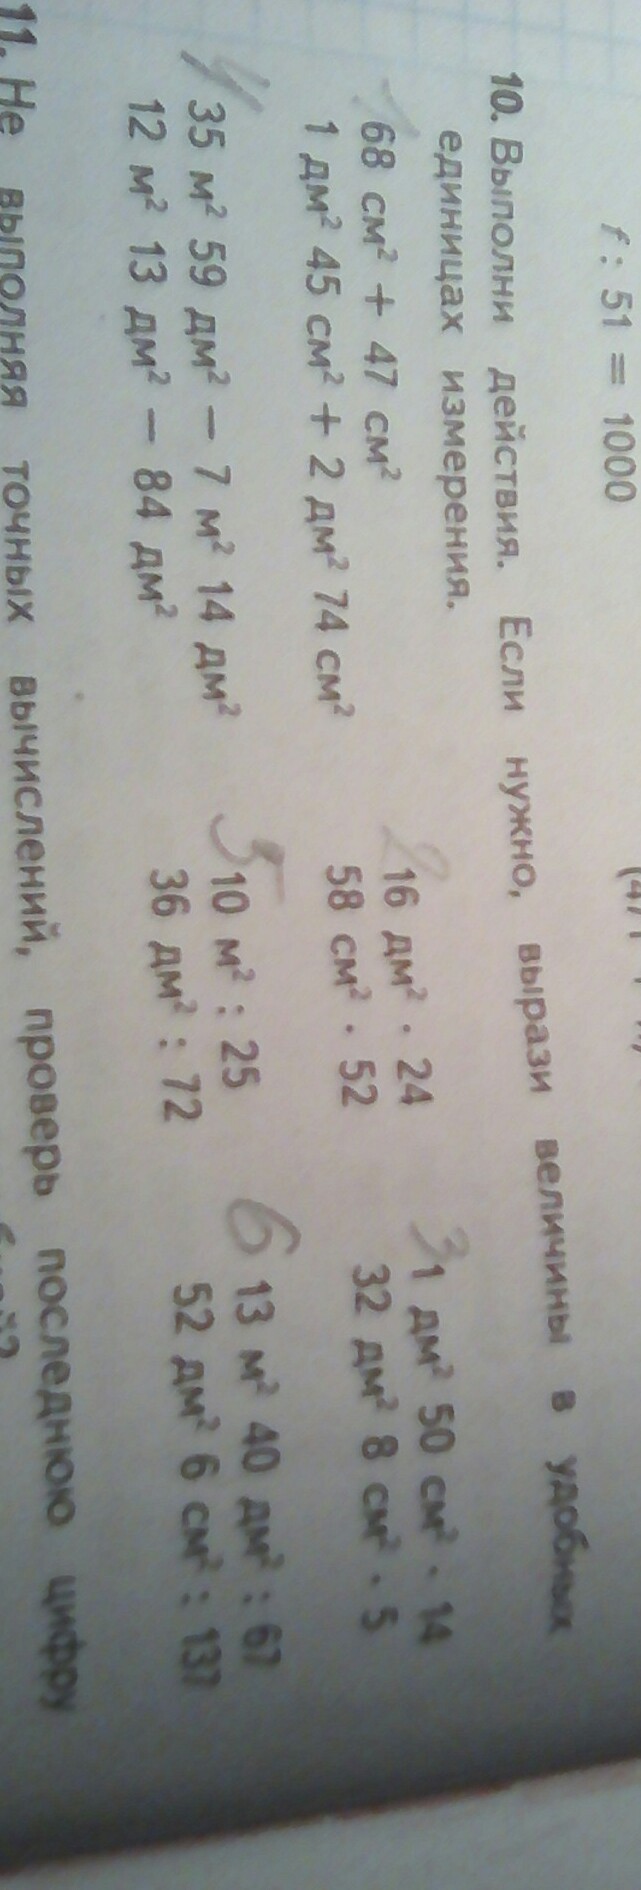 f : 51 = 1000
10. Выполни действия. Если нужно, вырази величины в удобных
единицах измерения.
1 68 см² + 47 см² 2 16 дм² · 24 3 1 дм² 50 см² · 14
1 дм² 45 см² + 2 дм² 74 см² 58 см² · 52 32 дм² 8 см² · 5
4 35 м² 59 дм² − 7 м² 14 дм² 5 10 м² : 25 6 13 м² 40 дм² : 67
12 м² 13 дм² − 84 дм² 36 дм² : 72 52 дм² 6 см² : 137
11. Не выполняя точных вычислений, проверь последнюю цифру